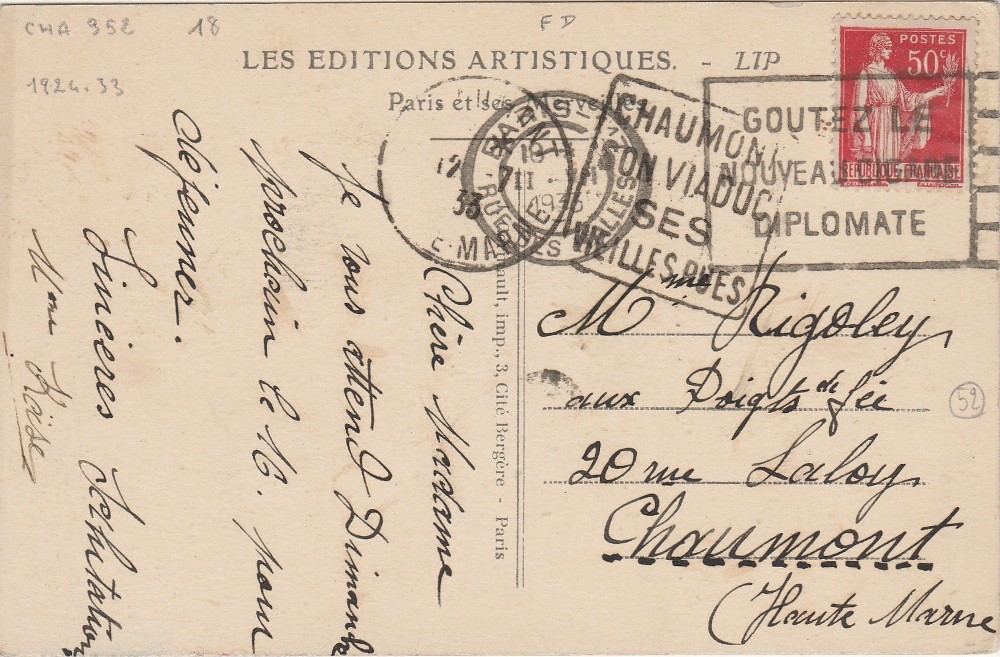 CHA 352 18
FD
1924.33
LES EDITIONS ARTISTIQUES. - LIP
Paris et ses Merveilles
POSTES
50c
REPUBLIQUE FRANÇAISE
GOUTEZ LE
NOUVEAU CIGARE
DIPLOMATE
CHAUMONT
SON VIADUC
SES
VIEILLES RUES
PARIS
1933
12
33
E-MARNE
imp., 3, Cité Bergère - Paris
Chère Madame
Je vous attend Dimanche
prochain le 16. pour
déjeuner.
Sincères Salutations
Mme
Mme Rigoley
aux Doigts de fée
20 rue Laloy
Chaumont
(Haute Marne
52